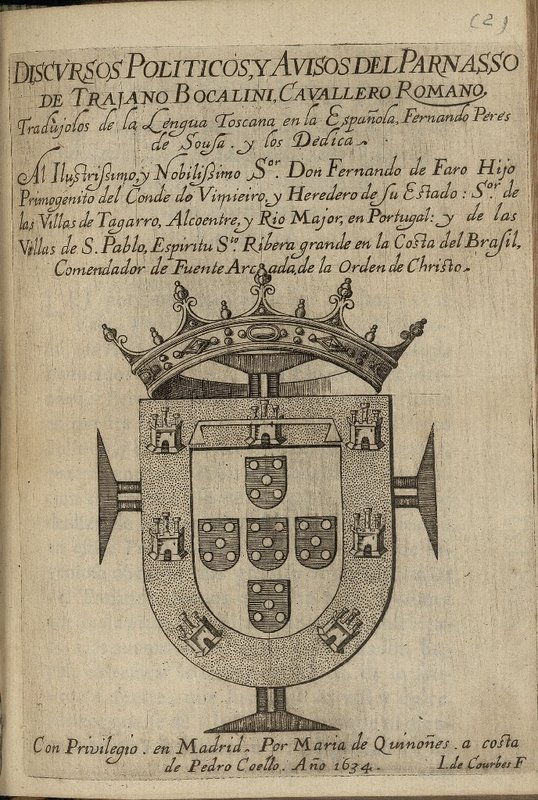 (2)
DISCVRSOS POLITICOS, Y AVISOS DEL PARNASSO
DE TRAJANO BOCALINI, CAVALLERO ROMANO.
Tradujolos de la Lengua Toscana en la Española, Fernando Peres
de Sousa. y los Dedica.
Al Ilustrissimo, y Nobilissimo S.or Don Fernando de Faro Hijo
Primogenito del Conde de Vimieiro, y Heredero de su Estado: S.or de
las Villas de Tagarro, Alcoentre, y Rio Major, en Portugal: y de las
Villas de S. Pablo, Espiritu S.to Ribera grande en la Costa del Brasil,
Comendador de Fuente Arcada, de la Orden de Christo.
Con Privilegio. en Madrid. Por Maria de Quinoñes. a costa
de Pedro Coello. Año 1634.
I. de Courbes F